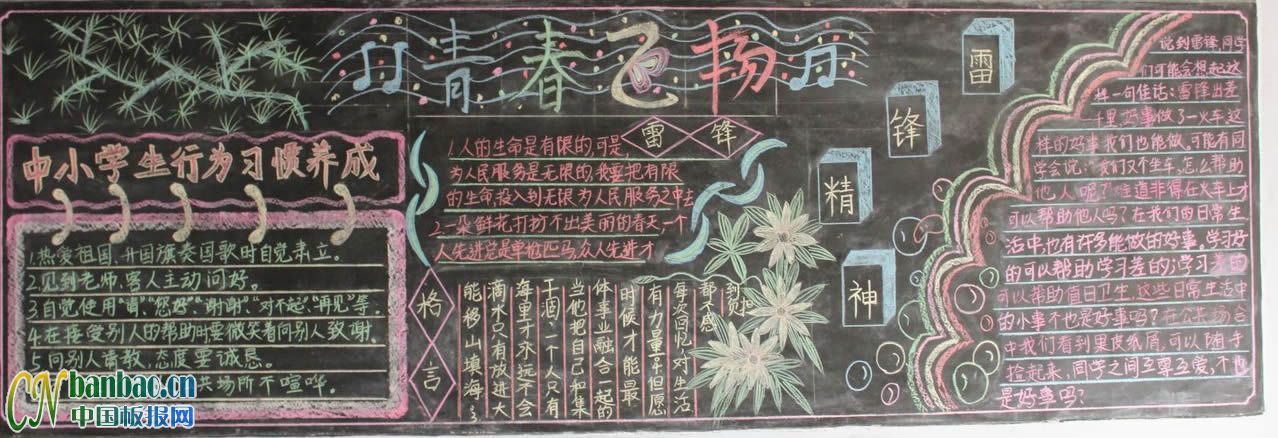 青春飞扬
中小学生行为习惯养成
1.热爱祖国,升国旗奏国歌时自觉肃立。
2.见到老师、客人主动问好。
3.自觉使用“请”、“您好”、“谢谢”、“对不起”、“再见”等。
4.在接受别人的帮助时要微笑着向别人致谢。
5.向别人请教,态度要诚恳。
共场所不喧哗。
雷锋
1.人的生命是有限的,可是,
为人民服务是无限的,我要把有限
的生命,投入到无限为人民服务之中去
2.一朵鲜花打扮不出美丽的春天,一个
人先进总是单枪匹马,众人先进才
能移山填海3
格言
滴水只有放进大
海里才永远不会
干涸,一个人只有
当他把自己和集
体事业融合一起的
时候才能最
有力量。4但愿
每次回忆,对生活
都不感
到负担
雷锋精神
说到雷锋,同学
们可能会想起这
样一句佳话:雷锋出差
一千里,好事做了一火车,这
样的好事我们也能做。可能有同
学会说:“我们又不坐车,怎么帮助
他人呢?”难道非得在火车上才
可以帮助他人吗?在我们的日常生
活中也有许多能做的好事,学习好
的可以帮助学习差的;学习差的
可以帮助值日卫生,这些日常生活中
的小事不也是好事吗?在公共场合
中我们看到果皮纸屑,可以随手
捡起来,同学之间互尊互爱,不也
是好事吗?
CN banbao.cn
中国板报网